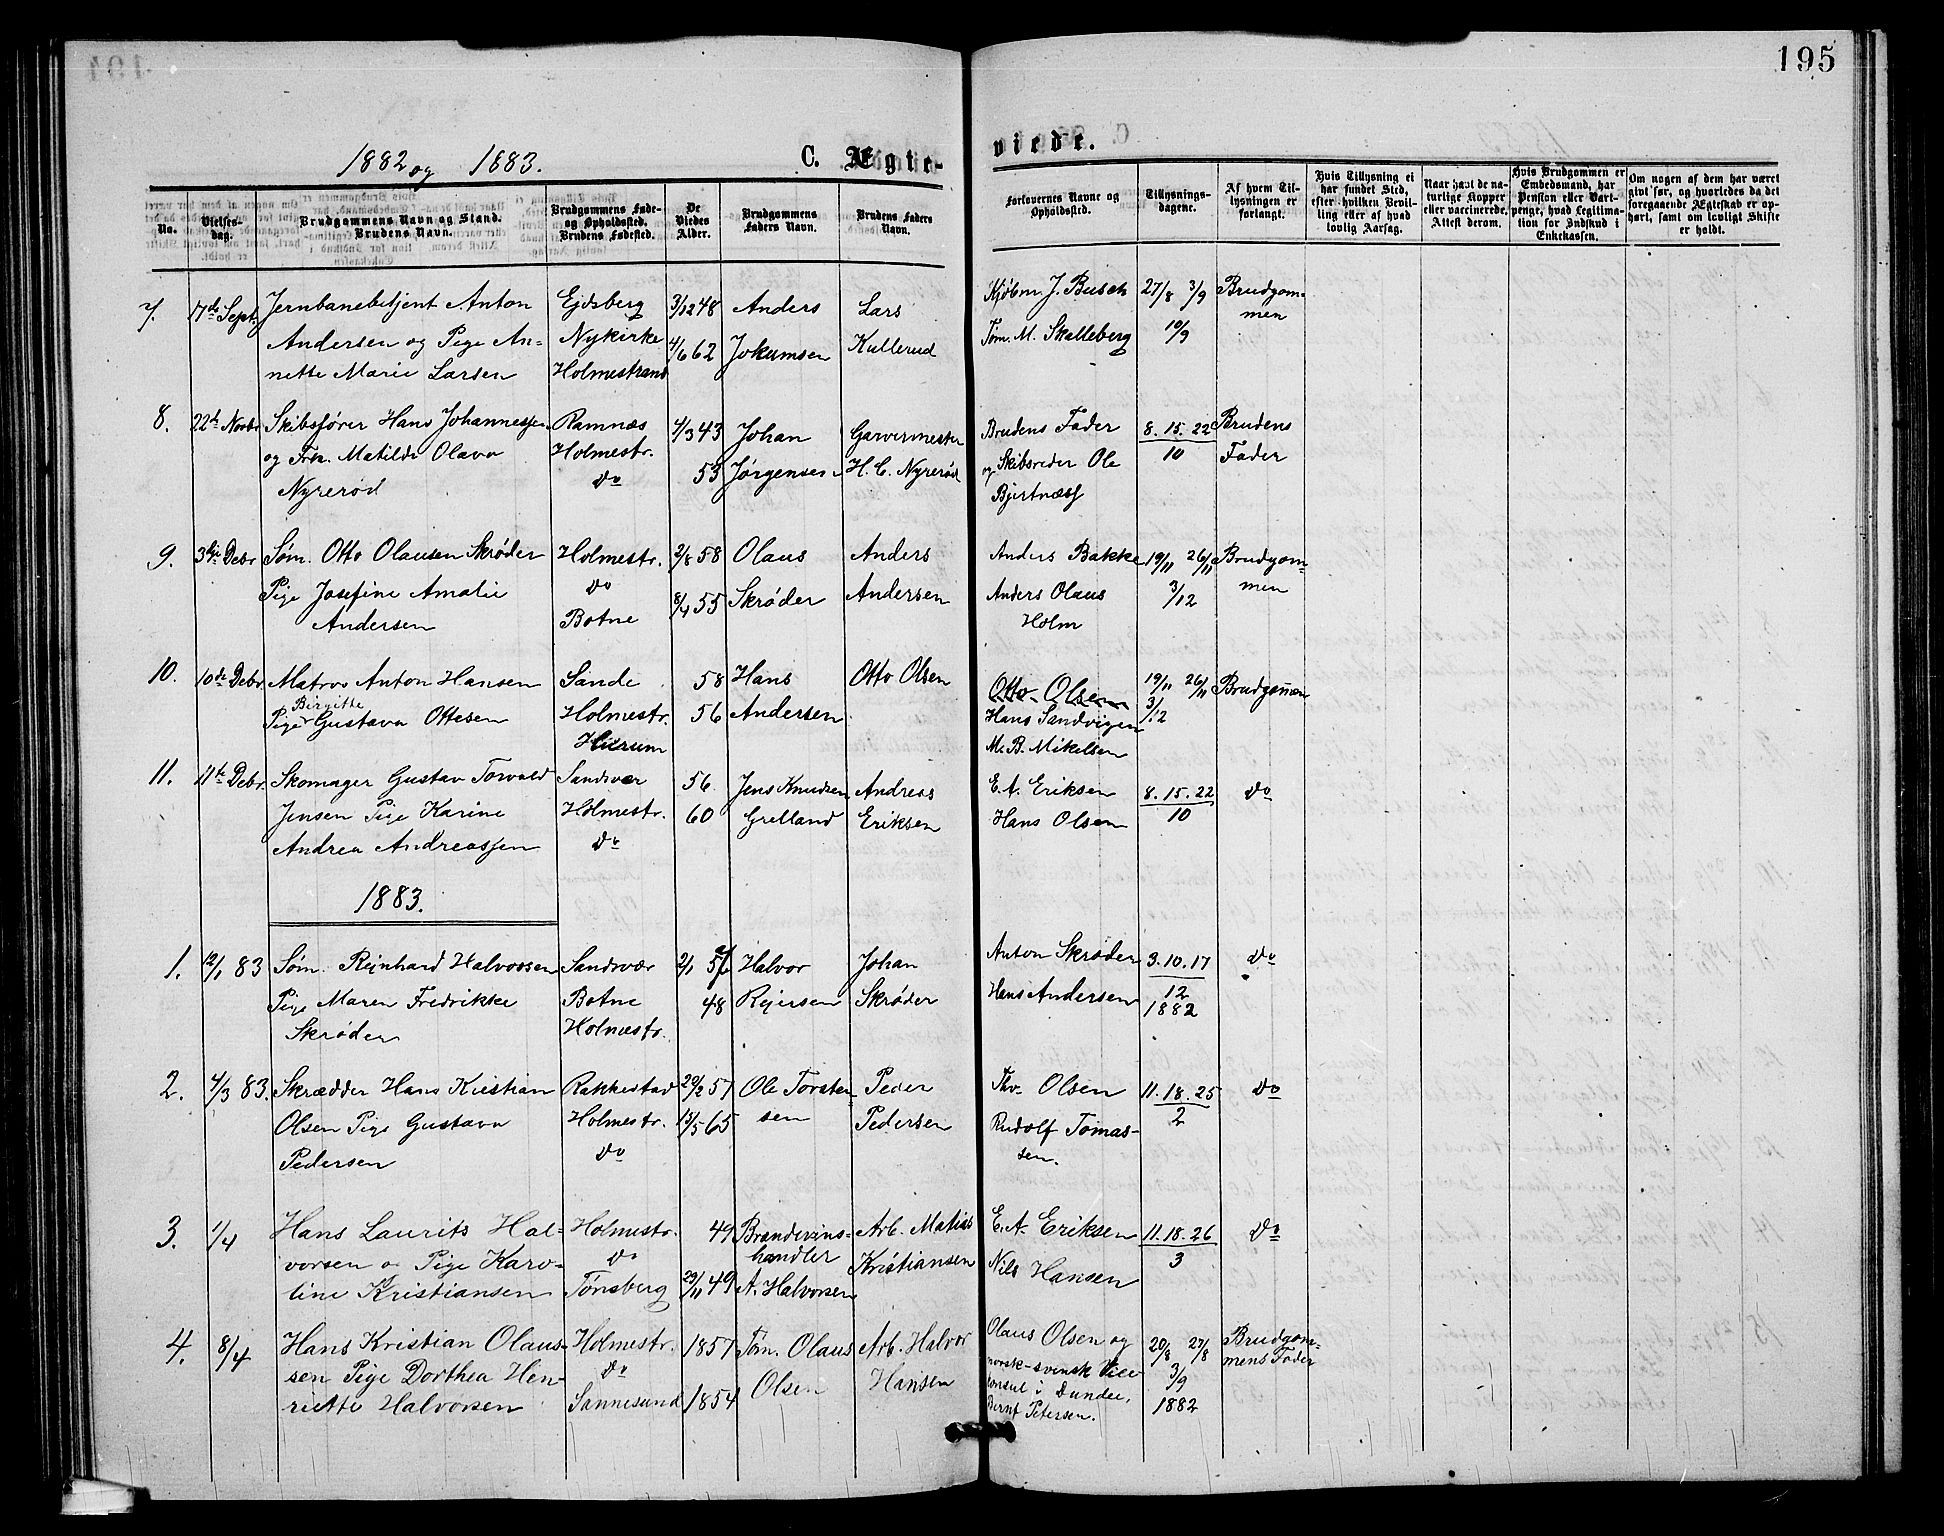 195
1882 og 1883.
C. Ægte-
viede.
No.
Vielses-
dag.
Brudgommens Navn og Stand.
Brudens Navn.
Brudgommens Føde-
og Opholdssted.
Brudens Fødested.
De
Viedes
Alder.
Brudgommens
Faders Navn.
Brudens Faders
Navn.
Forlovernes Navne og
Opholdssted.
Tillysnings-
dagene.
Af hvem Til-
lysningen er
forlangt.
Hvis Tillysning ei
har fundet Sted,
efter hvilken Bevil-
ling eller af hvad
lovlig Aarsag.
Naar havt de na-
turlige Kopper
eller vaccinerede.
Attest derom.
Hvis Brudgommen er
Embedsmand, har
Pension eller Vart-
penge, hvad Legitima-
tion for Indskud i
Enkekassen.
Om nogen af dem har været
givt før, og hvorledes da det
foregaaende Ægteskab er op-
hørt, samt om lovligt Skifte
er holdt.
7.
17de Sept.
Jernbanebetjent Anton
Andersen og Pige An-
nette Marie Larsen
Ejdsberg
Nykirke
Holmestrand
3/12 48
4/6 62
Anders
Jokumsen
Lars
Kullerud
Kjøbm. J. Busch
Tøm. M. Skalleberg
27/8 3/9
10/9
Brudgom-
men
8.
22de Novbr
Skibsfører Hans Johannessen
og Frk. Matilde Olava
Nyrerød
Ramnæs
Holmestr.
do
4/3 43
53
Johan
Jørgensen
Garvermester
H. C. Nyrerød
Brudens Fader
og Skibsreder Ole
Bjertnæss
8. 15. 22
10
Brudens
Fader
9.
3die Debr
Søm. Otto Olausen Skrøder
Pige Josefine Amalie
Andersen
Holmestr.
do
Botne
2/8 58
8/4 55
Olaus
Skrøder
Anders
Andersen
Anders Bakke
Anders Olaus
Holm
19/11 26/11
3/12
Brudgom-
men
10.
10de Debr
Matros Anton Hansen
Birgitte
Pige Gustava Ottesen
Sande
Holmestr.
Hurum
58
56
Hans
Andersen
Otto Olsen
Otto Olsen
Hans Sandvigen
M. B. Mikelsen
19/11 26/11
3/12
Brudgommen
11.
11te Debr.
Skomager Gustav Torvald
Jensen Pige Karine
Andrea Andreassen
Sandsvær
Holmestr.
do
56.
60
Jens Knudsen
Grelland
Andreas
Eriksen
E. A. Eriksen
Hans Olsen
8. 15. 22
10
do
1883.
1.
12/1 83
Søm. Rejnhard Halvorsen
Pige Maren Fredrikke
Skrøder
Sandsvær
Botne
Holmestr.
2/1 57
48
Halvor
Rejersen
Johan
Skrøder
Anton Skrøder
Hans Andersen
3. 10. 17
12
1882
do
2.
4/3 83.
Skrædder Hans Kristian
Olsen Pige Gustava
Pedersen
Rakkestad
Holmestr.
do
20/2 57
13/5 65
Ole Torsten
sen
Peder
Pedersen
Thv. Olsen
Rudolf Tomas-
sen.
11. 18. 25
2
do
3.
1/4
Hans Laurits Hal-
vorsen o Pige Karo-
line Kristiansen
Holmestr.
do
Tønsberg
49
29/11 49
Brændevins-
handler
A. Halvorsen
Arb. Matias
Kristiansen
E. A. Eriksen
Nils Hansen
11. 18. 26
3
do
4.
8/4
Hans Kristian Olaus-
sen Pige Dorthea Hen-
riette Halvorsen
Holmestr.
do
Sannesund
1857
1854
Tøm. Olaus
Olsen
Arb. Halvor
Hansen
Olaus Olsen og
norsk-svensk Vice
konsul i Dundee,
Bernt Petersen.
20/8 27/8
3/9
1882
Brudgom-
mens Fader